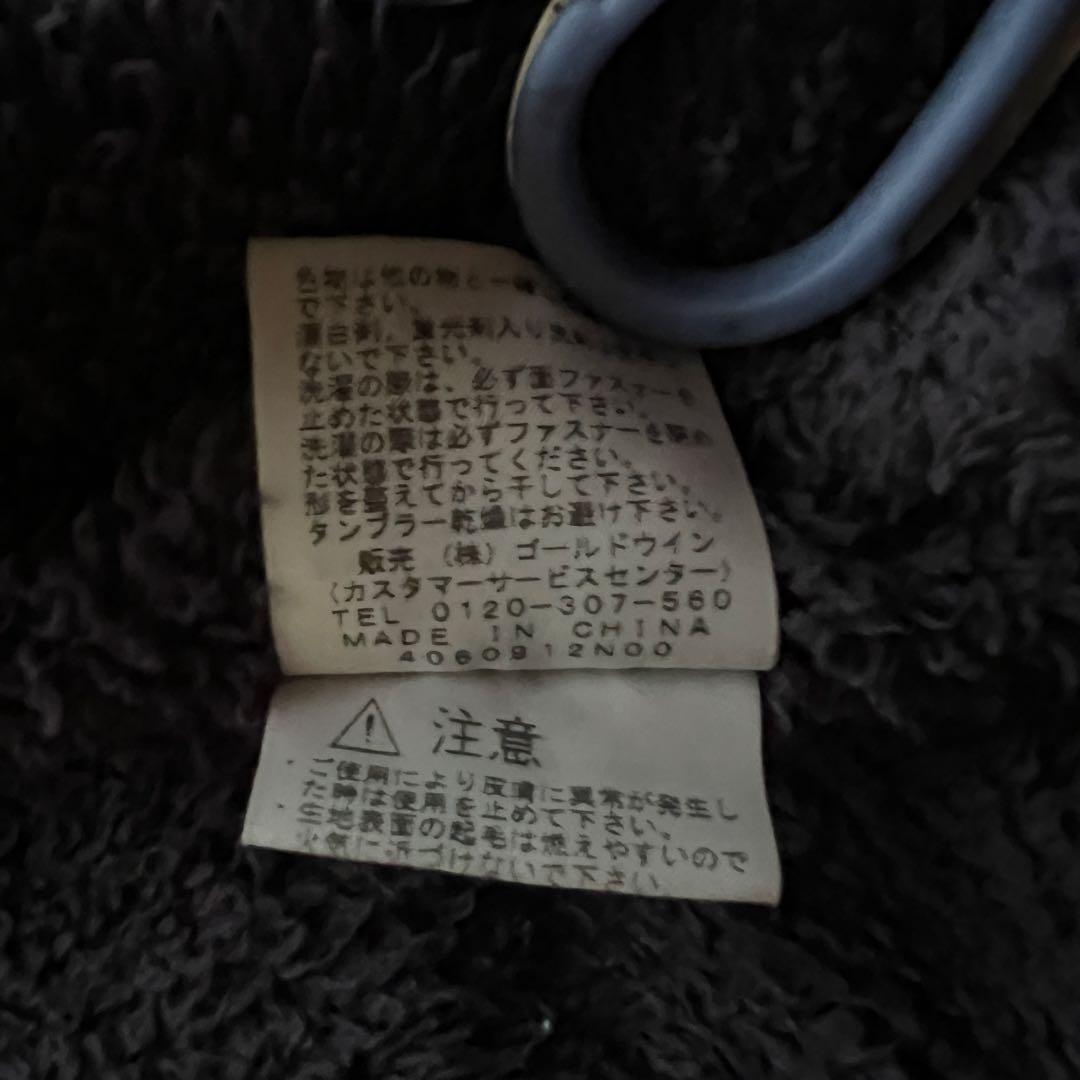 色物は他の物と一緒
で下さい。
漂白剤、蛍光剤入り洗
ないで下さい。
洗濯の際は、必ず面ファスナーを
止めた状態で行って下さい。
洗濯の際は必ずファスナーを締め
た状態で行ってください。
形を整えてから干して下さい。
タンブラー乾燥はお避け下さい。
販売 (株)ゴールドウイン
(カスタマーサービスセンター)
TEL 0120-307-560
MADE IN CHINA
4060912N00
注意
ご使用により皮膚に異常が発生し
た時は使用を止めて下さい。
生地表面の起毛は燃えやすいので
火気に近づけないで下さい。